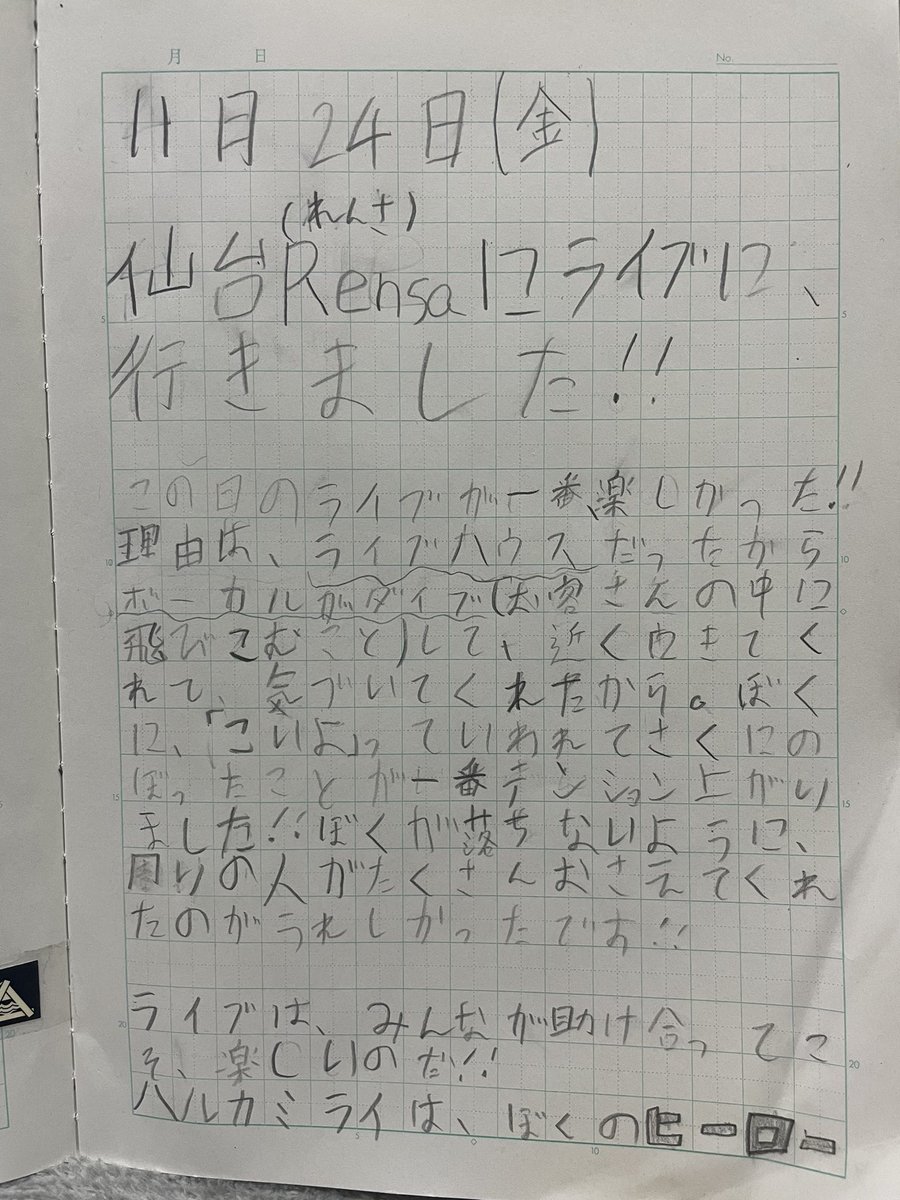 月 日 No.
11月24日(金)
(れんさ)
仙台Rensaにライブに、
行きました!!
この日のライブが一番、楽しかった!!
理由は、ライブハウスだったから
ボーカルがダイブ(お客さんの中に
飛びこむこと)して、近くにきてく
れて、気づいてくれたから。ぼく
に、「こいよ」っていわれてさくにの
ぼったことが一番テンション上がり
ました!!ぼくが落ちないように、
周りの人がたくさんおさえてくれ
たのがうれしかったです!!
ライブは、みんなが助け合ってこ
そ、楽しいのだ!!
ハルカミライは、ぼくのヒーロー